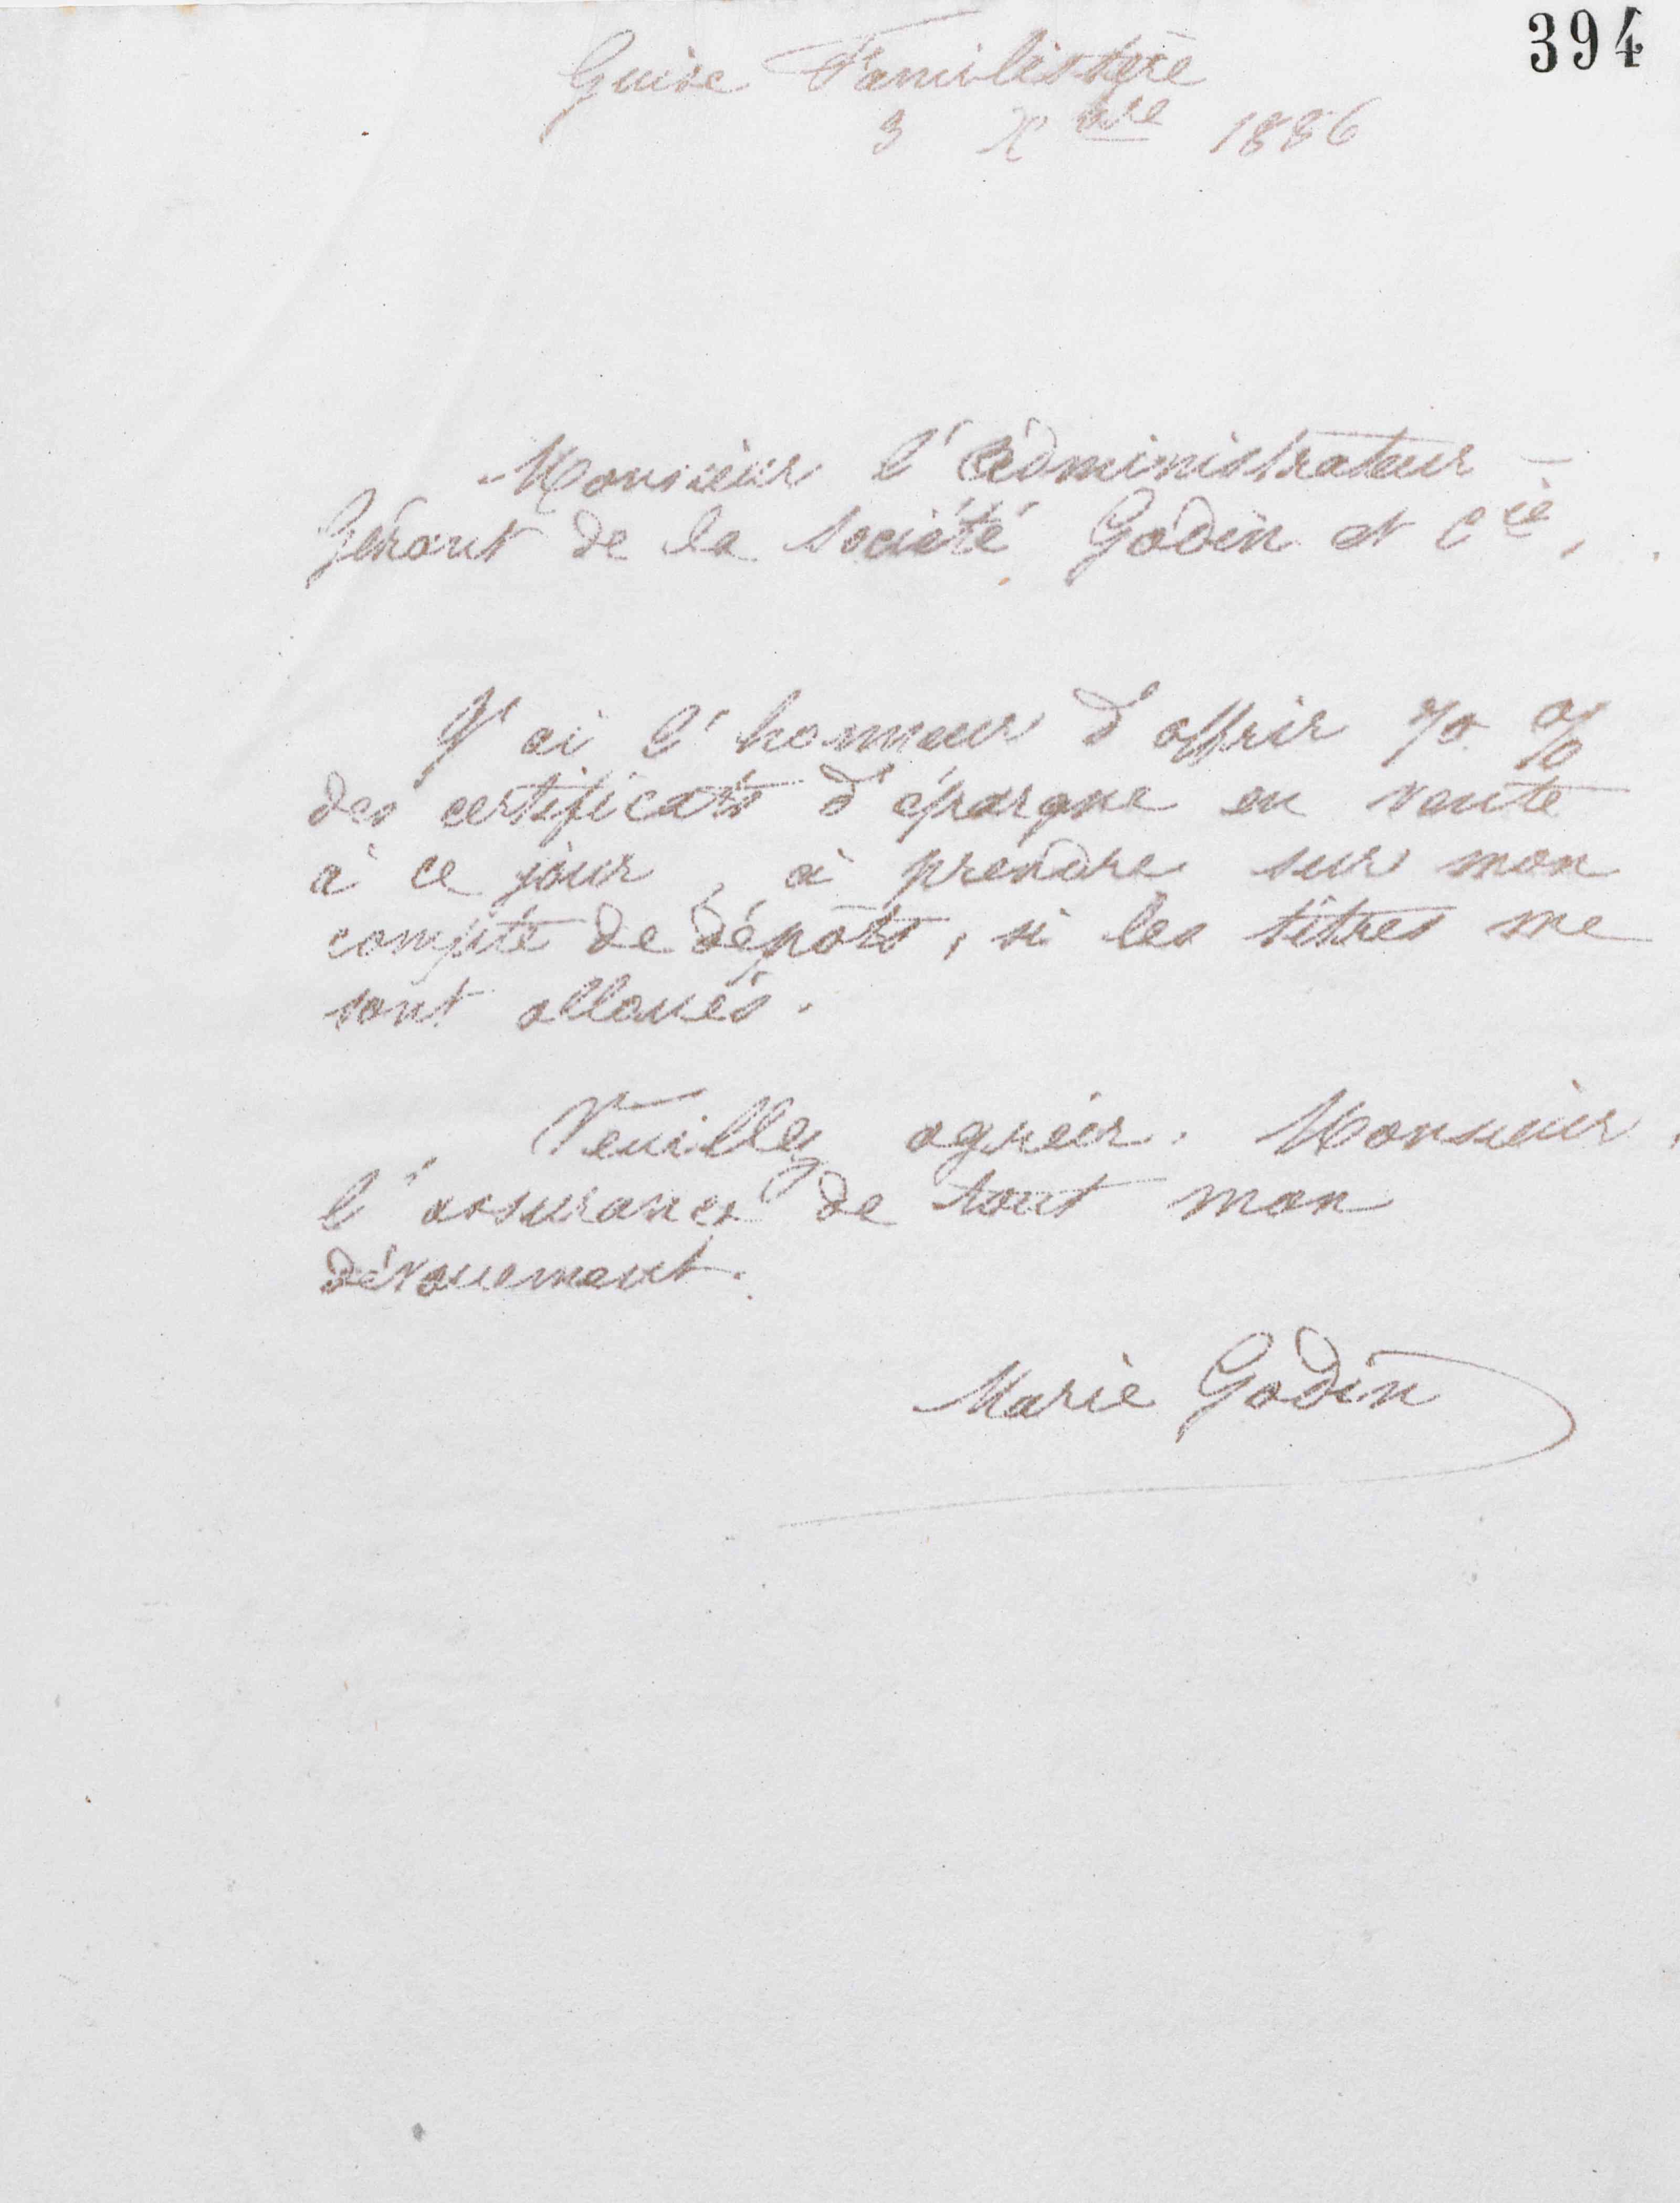 394
Guise Familistère
3 Xbre 1886
Monsieur l'administrateur-
Gérant de la société Godin et Cie,
J'ai l'honneur d'offrir 70 %
des certificats d'épargne en vente
à ce jour, à prendre sur mon
compte de dépôts, si les titres me
sont alloués.
Veuillez agréer, Monsieur,
l'assurance de tout mon
dévouement.
Marie Godin